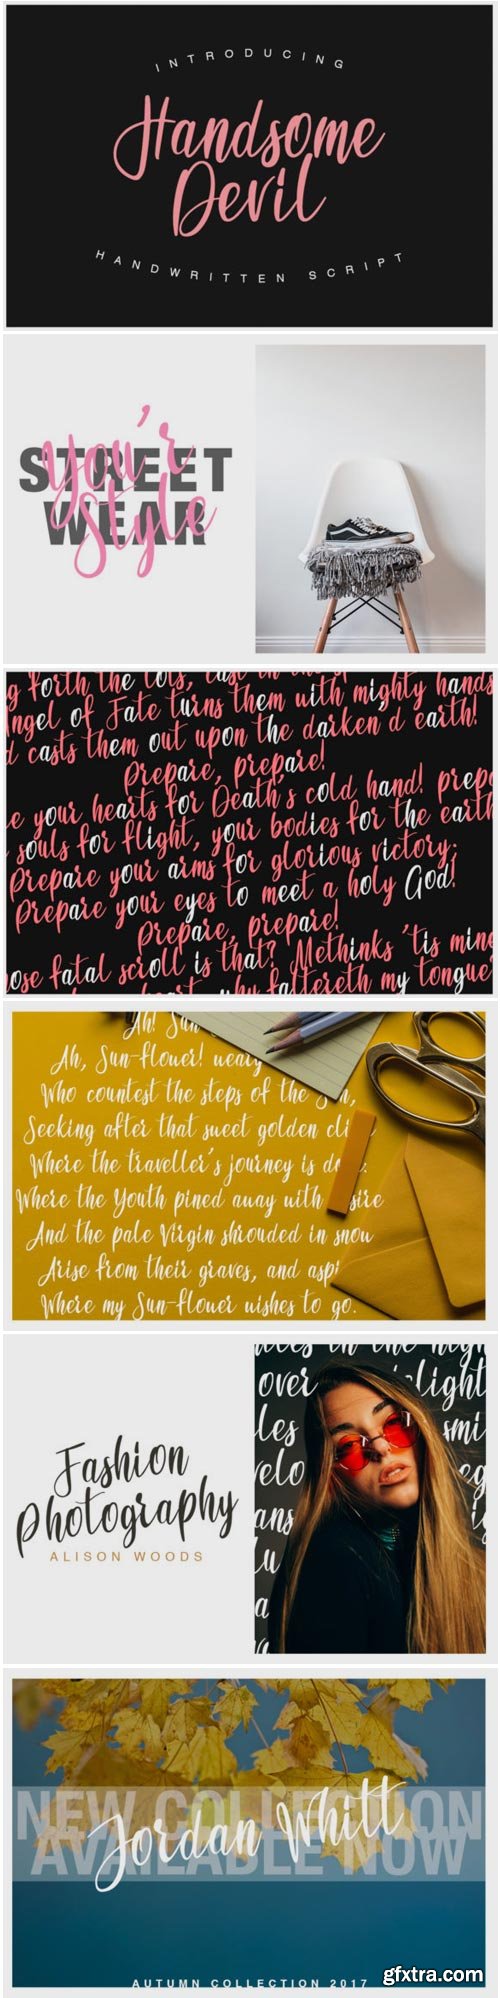 INTRODUCING
Handsome
Devil
HANDWRITTEN SCRIPT
You'r
STREET
Style
WEAR
g forth the lots,
Angel of Fate turns them with mighty hands
d casts them out upon the darken'd earth!
Prepare, prepare!
e your hearts for Death's cold hand! prepa
souls for flight, your bodies for the earth
Prepare your arms for glorious victory;
Prepare your eyes to meet a holy God!
Prepare, prepare!
ose fatal scroll is that? Methinks 'tis mine
heart, why faltereth my tongue
Ah! Sun
Ah, Sun-flower! weary
Who countest the steps of the Sun,
Seeking after that sweet golden cli
Where the traveller's journey is do
Where the Youth pined away with sire
And the pale Virgin shrouded in snow
Arise from their graves, and aspi
Where my Sun-flower wishes to go.
in the nigh
over light
les smi
velo eg
ans
lu
a
Fashion
Photography
ALISON WOODS
NEW COLLECTION
Jordan Whitt
AVAILABLE NOW
AUTUMN COLLECTION 2017
gfxtra.com